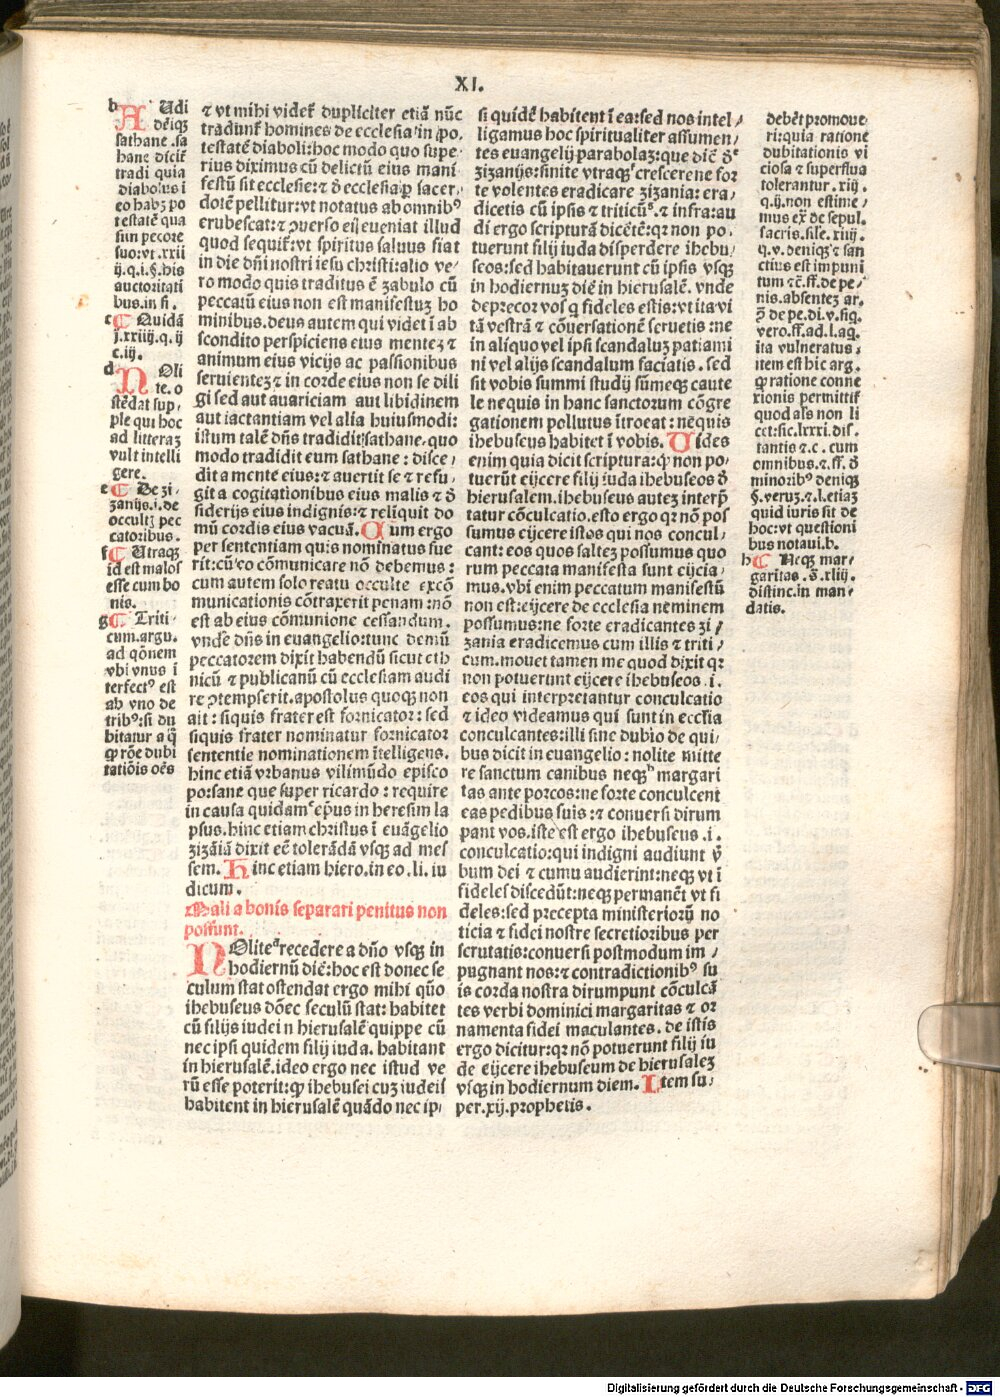 XI.
b AUdi
dēiqꝫ
sathane .sa
hane dicit̄
tradi quia
diabolus ī
eo habꝫ po
testatē qua
sun pecore
suo:vt .xxii
ij.q.i.§.his
auctoritati
bus.in fi.
c ¶ Quidā
j.xxiiij.q.ij
c.iij.
d NOli
te.o
stēdat sup/
ple qui hoc
ad litteraꝫ
vult intelli
gere.
e ¶ De zi/
zanijs.i.de
occultꝭ pec
catoribus.
f ¶ Utraqꝫ
id est malos
esse cum bo
nis.
g ¶ Triti/
cum.argu.
ad q̄onem
vbi vnus ī
terfectꝰ est
ab vno de
tribꝰ:si du
bitatur a q̄
ꝙ rōe dubi
tatiōis oēs
⁊ vt mihi videt̄ dupliciter etiā nūc
tradunt̄ homines de ecclesia in ꝑo/
testatē diaboli:hoc modo quo supe/
rius diximus cū delictū eius mani
festū sit ecclesie:⁊ đ ecclesia ꝑ sacer/
dotē pellitur:vt notatus ab omnibꝰ
erubescat:⁊ ꝯuerso ei eueniat illud
quod sequit̄:vt spiritus saluus fiat
in die dn̄i nostri iesu christi:alio ve/
ro modo quis traditus ē zabulo cū
peccatū eius non est manifestuꝫ ho
minibus.deus autem qui videt ī ab
scondito perspiciens eius menteꝫ ⁊
animum eius vicijs ac passionibus
seruienteꝫ ⁊ in corde eius non se dili
gi sed aut auariciam aut libidinem
aut iactantiam vel alia huiusmodi:
istum talē dn̄s tradidit sathane.quo
modo tradidit eum sathane: disce/
dit a mente eius:⁊ auertit se ⁊ refu/
git a cogitationibus eius malis ⁊ đ
siderijs eius indignis:⁊ reliquit do
mū cordis eius vacuā. Cum ergo
per sententiam quis nominatus fue
rit:cū eo cōmunicare nō debemus:
cum autem solo reatu occulte excō
municationis cōtraxerit penam:nō
est ab eius cōmunione cessandum.
vnde dn̄s in euangelio:tunc demū
peccatorem dixit habendū sicut eth
nicū ⁊ publicanū cū ecclesiam audi
re ꝯtempserit.apostolus quoqꝫ non
ait : siquis frater est fornicator : sed
siquis frater nominatur fornicator
sententie nominationem ītelligens.
hinc etiā vrbanus vilimūdo episco
po:sane que super ricardo : require
in causa quidam ep̄us in heresim la
psus.hinc etiam christus ī euāgelio
zizāiā dixit eē tolerādā vsqꝫ ad mes
sem. Hinc etiam hiero.in eo.li.iu
dicum.
Mali a bonis separari penitus non
possunt.
NOlite recedere a dn̄o vsqꝫ in
hodiernū diē:hoc est donec se
culum stat ostendat ergo mihi quō
ihebuseus dōec seculū stat: habitet
cū filijs iudei n hierusalē quippe cū
nec ipsi quidem filij iuda. habitant
in hierusalē.ideo ergo nec istud ve
rū esse poterit:ꝙ ihebusei cuꝫ iudeis
habitent in hierusalē quādo nec ip/
si quidē habitent ī ea:sed nos intel/
ligamus hoc spiritualiter assumen/
tes euangelij parabolaꝫ:que diē đ
zizanijs:sinite vtraqꝫ crescere ne for
te volentes eradicare zizania: era/
dicetis cū ipsis ⁊ triticū. ⁊ infra:au
di ergo scripturā dicētē:qꝛ non po/
tuerunt filij iuda disperdere ihebu/
seos:sed habitauerunt cū ipsis vsqꝫ
in hodiernuꝫ diē in hierusalē. vnde
deprecor vos q̄ fideles estis:vt ita vi
tā vestrā ⁊ cōuersationē seruetis :ne
in aliquo vel ipsi scandaluꝫ patiami
ni vel alijs scandalum faciatis. sed
sit vobis summi studij sūmeqꝫ caute
le nequis in hanc sanctorum cōgre
gationem pollutus ītroeat : nequis
ihebuseus habitet ī vobis. Uides
enim quia dicit scriptura:ꝙ non po/
tuerūt eijcere filij iuda ihebuseos đ
hierusalem.ihebuseus auteꝫ interp̄
tatur cōculcatio.esto ergo qꝛ nō pos
sumus eijcere istos qui nos concul/
cant: eos quos salteꝫ possumus quo
rum peccata manifesta sunt eijcia/
mus.vbi enim peccatum manifestū
non est:eijcere de ecclesia neminem
possumus:ne forte eradicantes zi/
zania eradicemus cum illis ⁊ triti/
cum.mouet tamen me quod dixit qꝛ
non potuerunt eijcere ihebuseos .i.
eos qui interpretantur conculcatio
⁊ ideo videamus qui sunt in eccl̄ia
conculcantes:illi sine dubio de qui/
bus dicit in euangelio : nolite mitte
re sanctum canibus neqꝫ margari
tas ante porcos:ne forte conculcent
eas pedibus suis:⁊ conuersi dirum
pant vos.iste est ergo ihebuseus .i.
conculcatio:qui indigni audiunt v̄
bum dei ⁊ cumu audierint:neqꝫ vt ī
fideles discedūt:neqꝫ permanēt vt fi
deles:sed precepta ministeriorū no
ticia ⁊ fidei nostre secretioribus per
scrutatis:conuersi postmodum im/
pugnant nos:⁊ contradictionibꝰ su
is corda nostra dirumpunt cōculcā
tes verbi dominici margaritas ⁊ or
namenta fidei maculantes. de istis
ergo dicitur:qꝛ nō potuerunt filij iu
de eijcere ihebuseum de hierusaleꝫ
vsqꝫ in hodiernum diem. Item su/
per.xij.prophetis.
debēt promoue/
ri:quia ratione
dubitationis vi
ciosa ⁊ superflua
tolerantur. xiij.
q.ij.non estime/
mus ex̄ de sepul.
sacris.sile.xiij.
q.v.deniqꝫ ⁊ san
ctius est impuni
tum ⁊c̄.ff.de pe/
nis.absenteꝫ ar.
ꝯ̄ de pe.di.v.sig.
vero.ff.ad.l.aq.
ita vulneratus/
item est hic arg.
ꝙ ratione conne
xionis permittit̄
quod als non li
cet:sic.lxxxi.dis.
tantis ⁊ c . cum
omnibus.⁊.ff. đ
minoribꝰ deniqꝫ
§.veruꝫ.⁊.l.etiaꝫ
quid iuris sit de
hoc:vt questioni
bus notaui.b.
h ¶ Neqꝫ mar/
garitas .ꝯ̄.xliij.
distinc.in man/
datis.
Digitalisierung gefördert durch die Deutsche Forschungsgemeinschaft - DFG